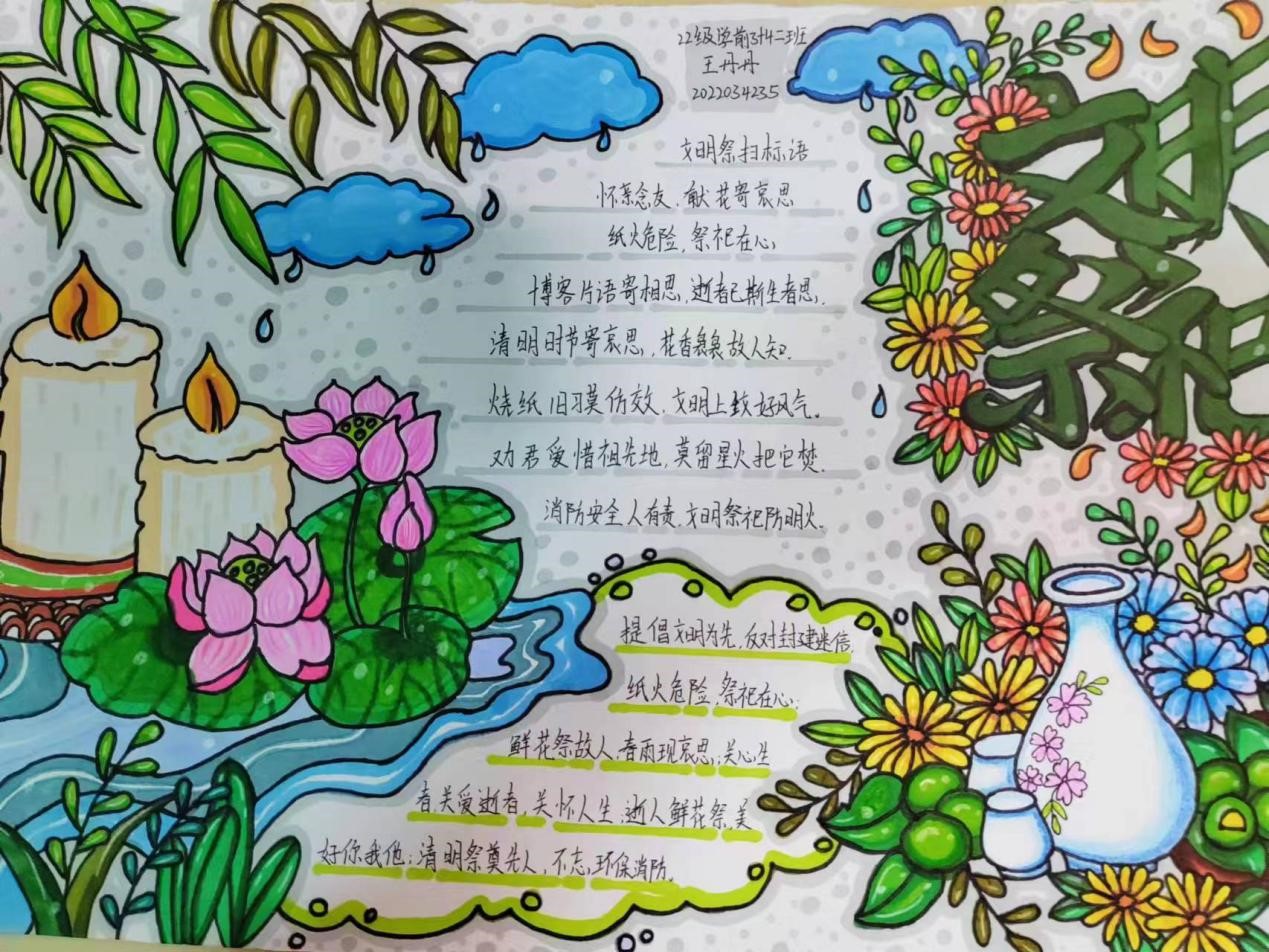 22级学前3+4二班
王丹丹
2022034235
文明祭祀
文明祭扫标语
怀亲念友,献花寄哀思
纸火危险,祭祀在心;
博客片语寄相思,逝者已斯生者思,
清明时节寄哀思,花香袅袅故人知.
烧纸旧习莫仿效,文明上坟好风气。
劝君爱惜祖先地,莫留星火把它焚.
消防安全人有责,文明祭祀防明火.
提倡文明为先,反对封建迷信,
纸火危险,祭祀在心;
鲜花祭故人,春雨现哀思;关心生
者关爱逝者,关怀人生;逝人鲜花祭,美
好你我他;清明祭奠先人,不忘,环保消防.